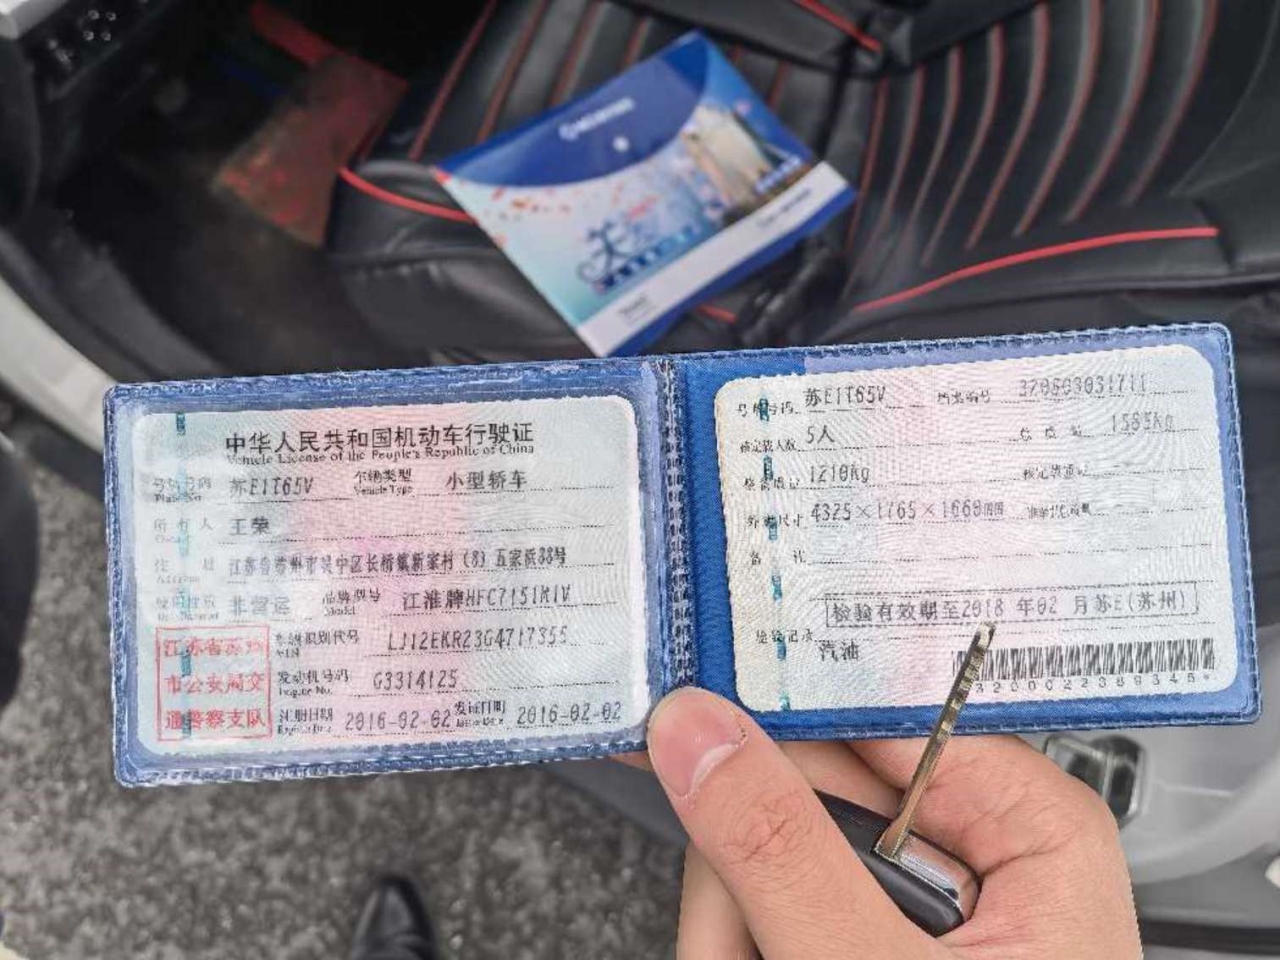 中华人民共和国机动车行驶证
Vehicle License of the People's Republic of China
号牌号码 苏E1T65V 车辆类型 小型轿车
Plate No. Vehicle Type
所有人 王荣
住 址 江苏省苏州市吴中区长桥镇新家村(8)五家浜88号
Address
使用性质 非营运 品牌型号 江淮牌HFC7151R1V
Model
江苏省苏州
市公安局交
通警察支队
车辆识别代号 LJ12EKR23G4717355
VIN
发动机号码 G3314125
Engine No.
注册日期 2016-02-02 发证日期 2016-02-02
号牌号码 苏E1T65V 档案编号 320503031711
核定载人数 5人 总质量 1585kg
整备质量 1210kg 核定载质量
外廓尺寸 4325×1765×1660mm 准牵引总质量
备 注
检验有效期至2018年02月苏E(苏州)
检验记录
汽油
关